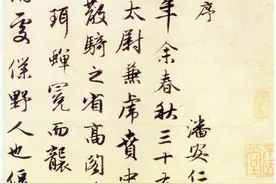 序
潘安仁
年余春秋三十
太尉兼虎賁中
散騎之省高閣
珥蟬冕而襲
處僕野人也偃